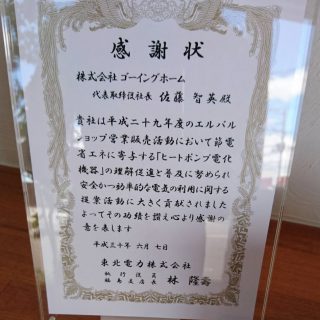 感謝状
株式会社 ゴーイングホーム
代表取締役社長 佐藤 智英 殿
貴社は平成二十九年度のエルバル
ショップ営業販売活動において節電
省エネに寄与する「ヒートポンプ電化
機器」の理解促進と普及に努められ
安全かつ効率的な電気の利用に関する
提案活動に大きく貢献されました
よってその功績を讃え心より感謝の
意を表します
平成三十年 六月 七日
東北電力株式会社
執行役員
福島支店長 林 隆壽